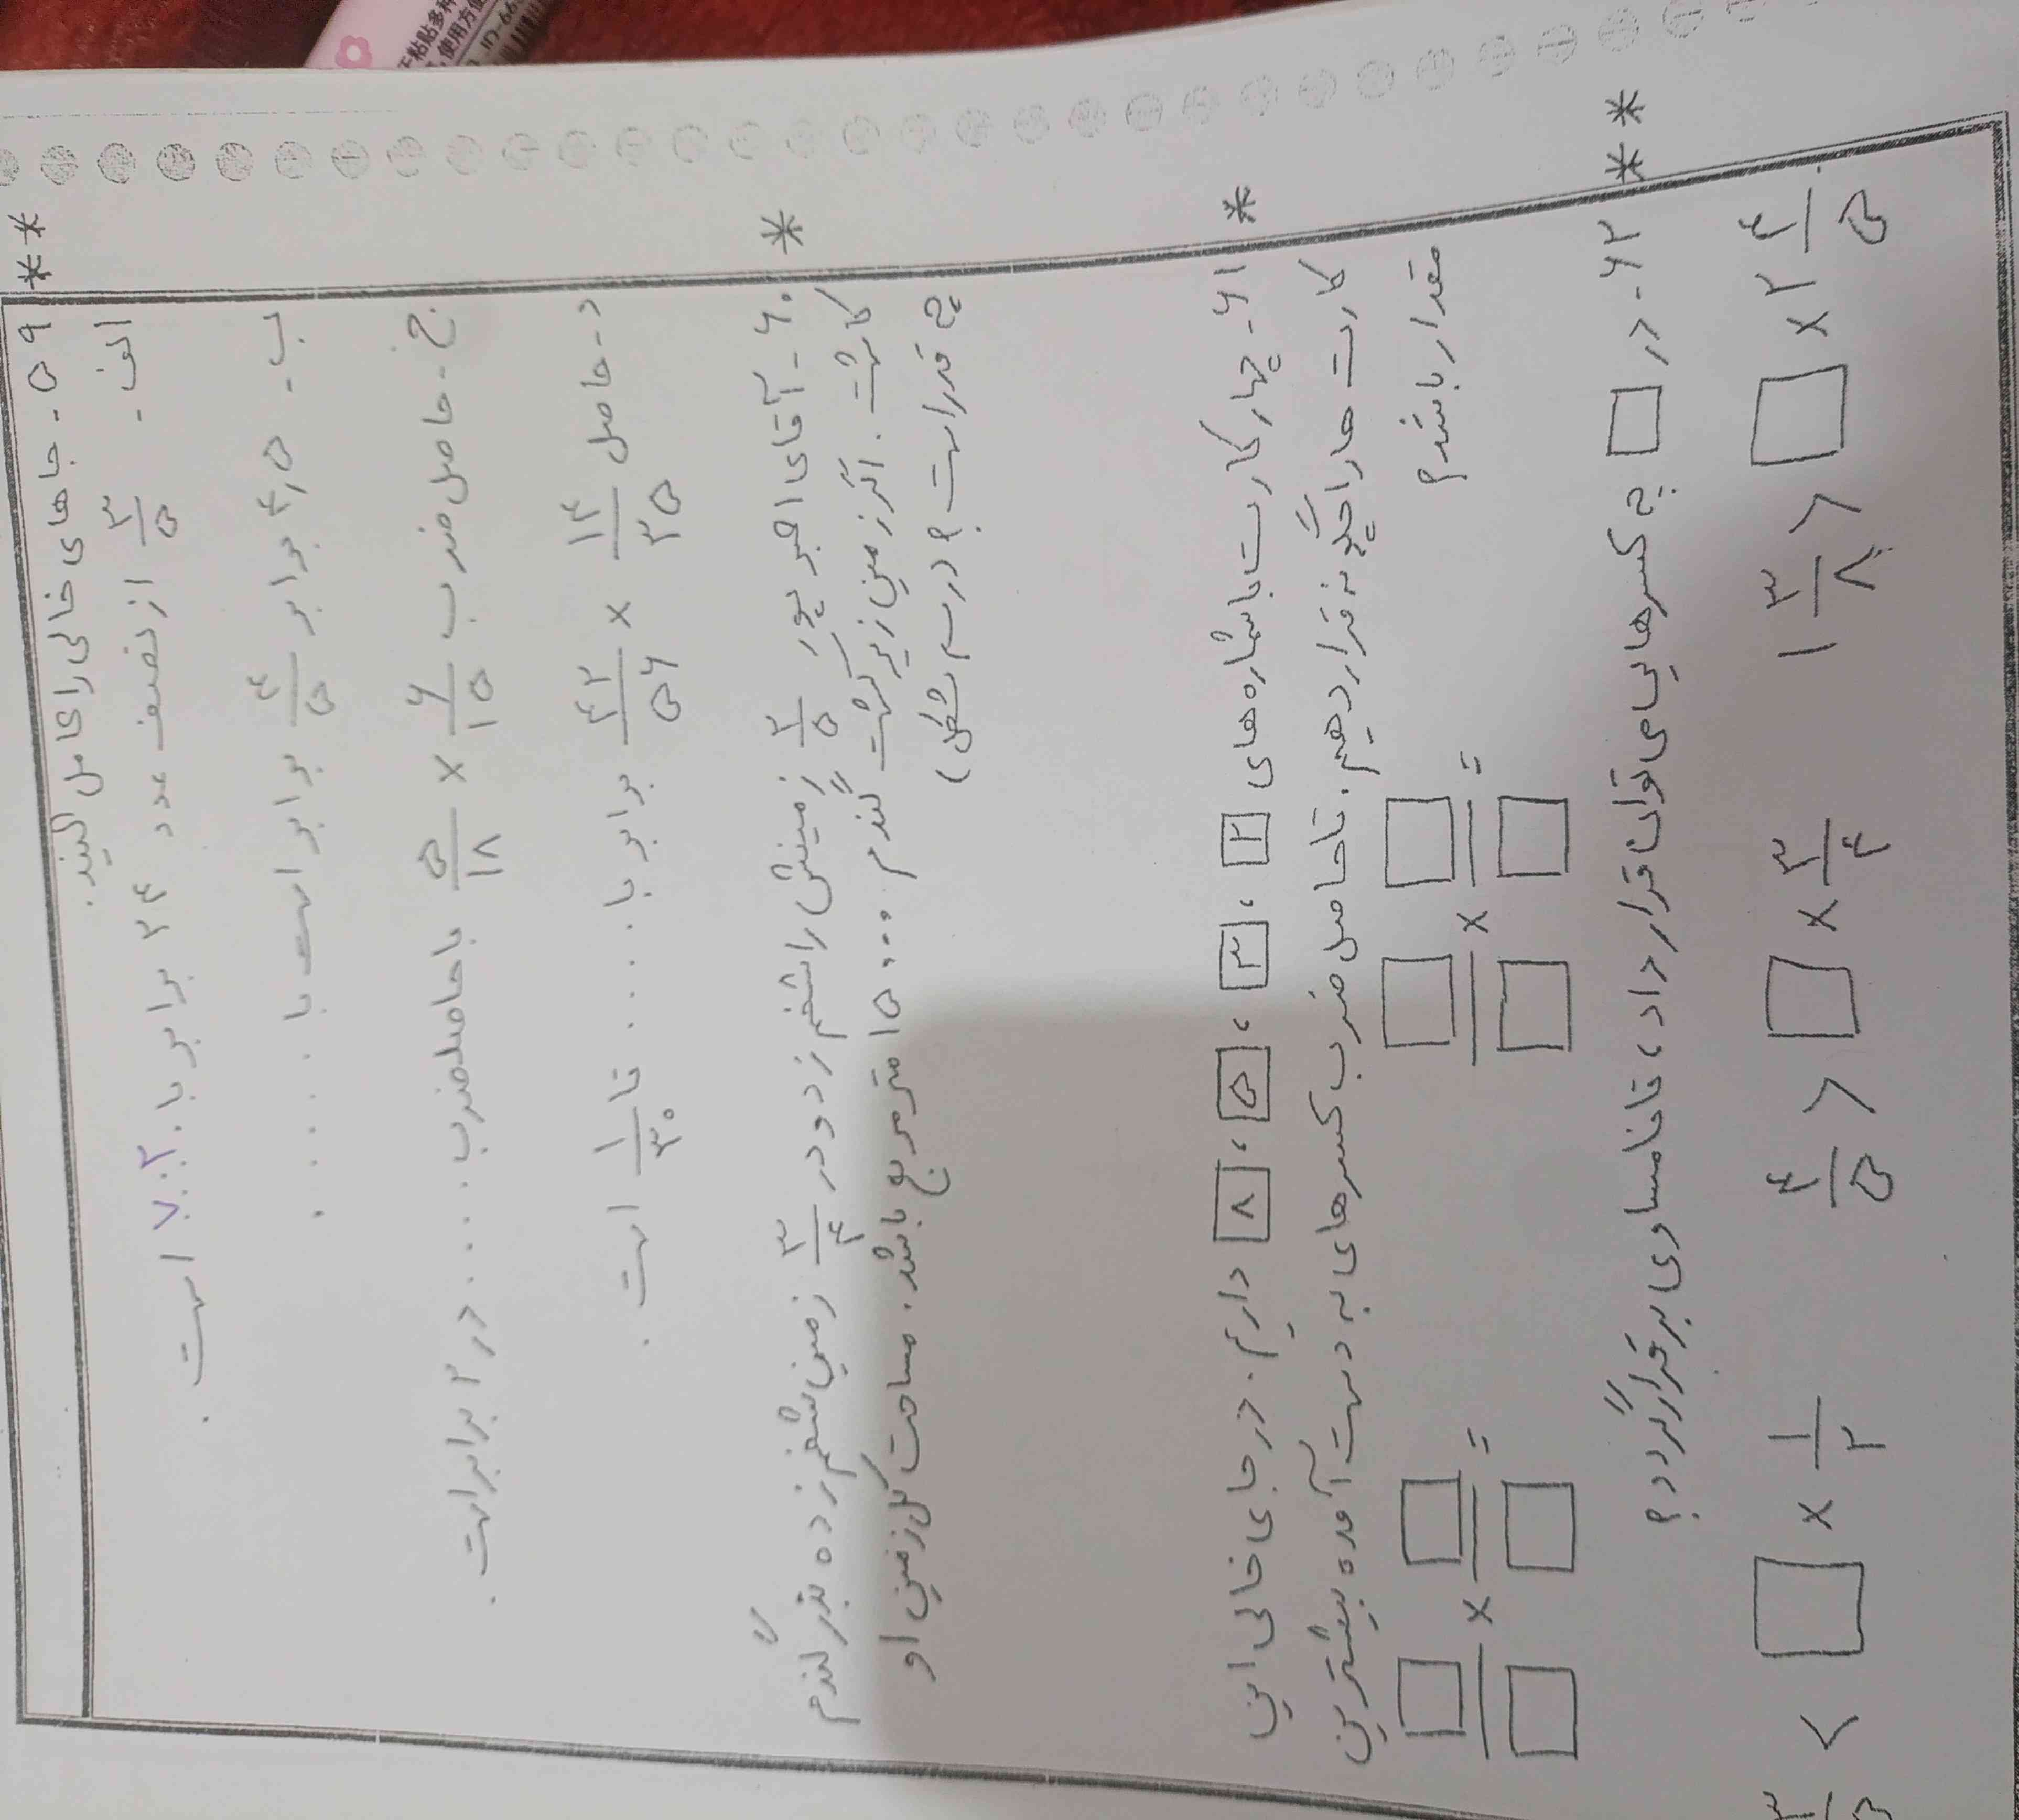 ۵۹- جاهای خالی را کامل کنید.
الف- ۳/۵ از نصف عدد ۲۴ برابر با ۷.۲ است.
ب- ۴,۵ برابر ۴/۵ برابر است با .....
ج- حاصل ضرب ۶/۱۵ × ۵/۱۸ با حاصلضرب ..... در ۲ برابر است.
د- حاصل ۱۴/۳۵ × ۴۲/۵۶ برابر با ..... تا ۱/۳۰ است.
۶۰- آقای اصغر پور ۲/۵ زمینش را شخم زد و در ۳/۴ زمین شخم زده بذر گندم
کاشت. اگر زمین زیر کشت گندم ۱۵۰۰۰ متر مربع باشد. مساحت کل زمین او
چه قدر است؟ (رسم شکل)
۶۱- چهار کارت با شماره های ۲، ۳، ۵، ۸ داریم. در جای خالی این
کارت ها را چگونه قرار دهیم. تا حاصل ضرب کسرهای به دست آمده بیشترین
مقدار باشد؟
□/□ × □/□ = □/□ × □/□ =
۶۲- در □ چه کسرهایی می توان قرار داد، تا نامساوی برقرار گردد؟
□ × ۲ ۴/۵ < ۱ ۳/۸ □ × ۳/۴ < ۴/۵ □ × ۱/۲ > ۳/۵